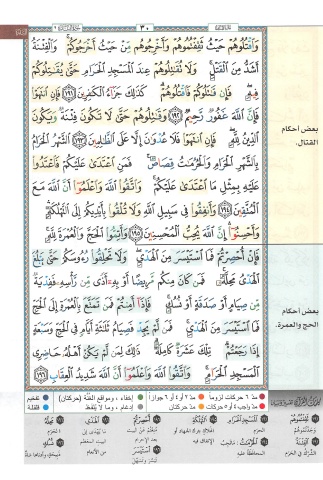 ٣٠
وَاقْتُلُوهُمْ حَيْثُ ثَقِفْتُمُوهُمْ وَأَخْرِجُوهُم مِّنْ حَيْثُ أَخْرَجُوكُمْ ۚ وَالْفِتْنَةُ
أَشَدُّ مِنَ الْقَتْلِ ۚ وَلَا تُقَاتِلُوهُمْ عِندَ الْمَسْجِدِ الْحَرَامِ حَتَّىٰ يُقَاتِلُوكُمْ
فِيهِ ۖ فَإِن قَاتَلُوكُمْ فَاقْتُلُوهُمْ ۗ كَذَٰلِكَ جَزَاءُ الْكَافِرِينَ ﴿١٩١﴾ فَإِنِ انتَهَوْا
فَإِنَّ اللَّهَ غَفُورٌ رَّحِيمٌ ﴿١٩٢﴾ وَقَاتِلُوهُمْ حَتَّىٰ لَا تَكُونَ فِتْنَةٌ وَيَكُونَ
الدِّينُ لِلَّهِ ۖ فَإِنِ انتَهَوْا فَلَا عُدْوَانَ إِلَّا عَلَى الظَّالِمِينَ ﴿١٩٣﴾ الشَّهْرُ الْحَرَامُ
بِالشَّهْرِ الْحَرَامِ وَالْحُرُمَاتُ قِصَاصٌ ۚ فَمَنِ اعْتَدَىٰ عَلَيْكُمْ فَاعْتَدُوا
عَلَيْهِ بِمِثْلِ مَا اعْتَدَىٰ عَلَيْكُمْ ۚ وَاتَّقُوا اللَّهَ وَاعْلَمُوا أَنَّ اللَّهَ مَعَ
الْمُتَّقِينَ ﴿١٩٤﴾ وَأَنفِقُوا فِي سَبِيلِ اللَّهِ وَلَا تُلْقُوا بِأَيْدِيكُمْ إِلَى التَّهْلُكَةِ ۛ
وَأَحْسِنُوا ۛ إِنَّ اللَّهَ يُحِبُّ الْمُحْسِنِينَ ﴿١٩٥﴾ وَأَتِمُّوا الْحَجَّ وَالْعُمْرَةَ لِلَّهِ ۚ
فَإِنْ أُحْصِرْتُمْ فَمَا اسْتَيْسَرَ مِنَ الْهَدْيِ ۖ وَلَا تَحْلِقُوا رُءُوسَكُمْ حَتَّىٰ يَبْلُغَ
الْهَدْيُ مَحِلَّهُ ۚ فَمَن كَانَ مِنكُم مَّرِيضًا أَوْ بِهِ أَذًى مِّن رَّأْسِهِ فَفِدْيَةٌ
مِّن صِيَامٍ أَوْ صَدَقَةٍ أَوْ نُسُكٍ ۚ فَإِذَا أَمِنتُمْ فَمَن تَمَتَّعَ بِالْعُمْرَةِ إِلَى الْحَجِّ
فَمَا اسْتَيْسَرَ مِنَ الْهَدْيِ ۚ فَمَن لَّمْ يَجِدْ فَصِيَامُ ثَلَاثَةِ أَيَّامٍ فِي الْحَجِّ وَسَبْعَةٍ
إِذَا رَجَعْتُمْ ۗ تِلْكَ عَشَرَةٌ كَامِلَةٌ ۗ ذَٰلِكَ لِمَن لَّمْ يَكُنْ أَهْلُهُ حَاضِرِي
الْمَسْجِدِ الْحَرَامِ ۚ وَاتَّقُوا اللَّهَ وَاعْلَمُوا أَنَّ اللَّهَ شَدِيدُ الْعِقَابِ ﴿١٩٦﴾
بعض أحكام
القتال.
بعض أحكام
الحج والعمرة.
مدّ ٦ حركات لزوماً
مدّ ٢ أو ٤ أو ٦ جوازاً
إخفاء، ومواقع الغنّة (حركتان)
تفخيم
مدّ واجب ٤ أو ٥ حركات
مدّ حركتان
إدغام، وما لا يُلفظ
قلقلة